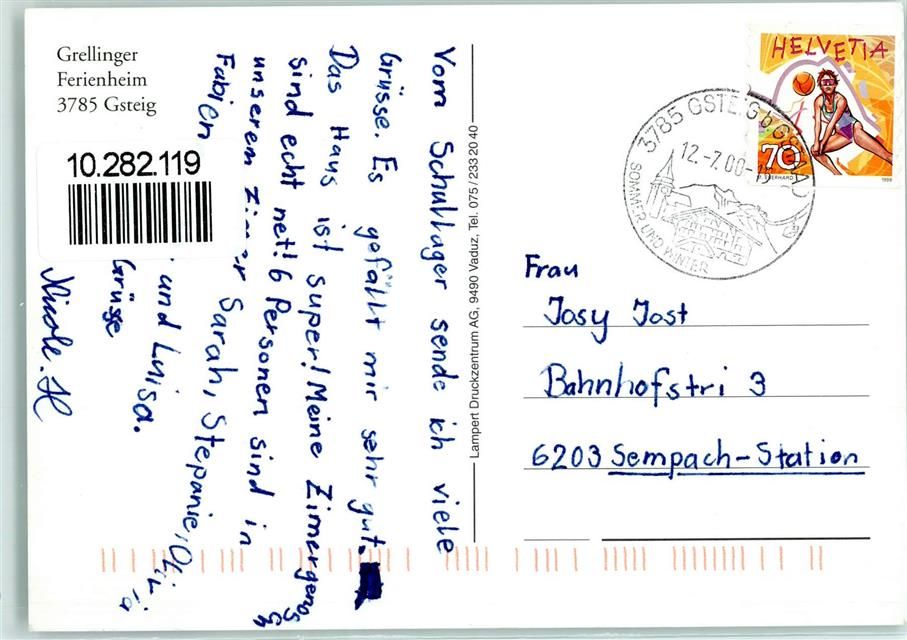 Grellinger
Ferienheim
3785 Gsteig
10.282.119
Vom Schullager sende ich viele
Grüsse. Es gefällt mir sehr gut.
Das Haus ist super! Meine Zimergenossen
sind echt net! 6 Personen sind in
unserem Zimmer Sarah, Stepanie, Olivia
Fabien
und Luisa.
Grüsse
Nicole. H
Lampert Druckzentrum AG, 9490 Vaduz, Tel. 075/233 20 40
HELVETIA
70
1999
3785 GSTEIG b GSTAAD
12.-7.00-
SOMMER UND WINTER
Frau
Josy Jost
Bahnhofstri 3
6203 Sempach-Station